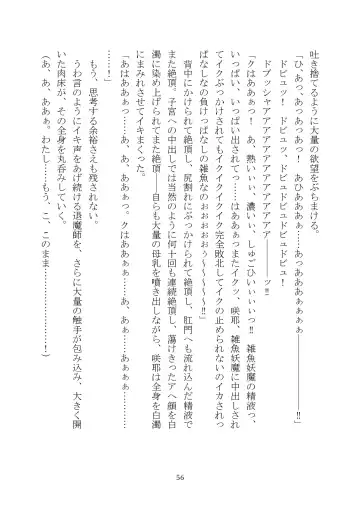 吐き捨てるように大量の欲望をぶちまける。
ドピュッ！　ドピュッ、ドピュドピュドピュ！
「ひあっ、あっあっあっ！　あひあああぁ……あっああああぁぁぁ――――――――――‼」
ドプッシャアアアアアアアアアアアアア――――――ッ‼
「クはああぁっ！　あ、熱いぃぃ、濃いぃ、しゅごひいぃぃぃっ‼　雑魚妖魔の精液っ、
いっぱい、いっぱい出されてっ……はああぁっまたイクッ、咲耶、雑魚妖魔に中出しされ
てイクぶっかけされてもイクイクイクイク完全敗北してイクの止められないのイカされっ
ぱなしなの負けっぱなしの雑魚なのぉぉぉぉぉぅ〜〜〜〜〜‼」
背中にかけられて絶頂し、尻割れにぶっかけられて絶頂し、肛門へも流れ込んだ精液で
また絶頂。子宮への中出しでは当然のように何十回も連続絶頂し、蕩けきったアヘ顔を白
濁に染め上げられてまた絶頂――自らも大量の母乳を噴き出しながら、咲耶は全身を白濁
にまみれさせてイキまくった。
「あはあぁぁっ……あ、あ、ああぁっ。クはああぁぁ……あ、あぁぁ……あぁぁぁ………
……！」
もう、思考する余裕さえも残されない。
うわ言のようにイキ声をあげ続ける退魔師を、さらに大量の触手が包み込み、大きく開
いた肉床が、その全身を丸呑みしていく。
（あ、あ、あああぁ。わたし……もう、こ、このまま…………………！）
56